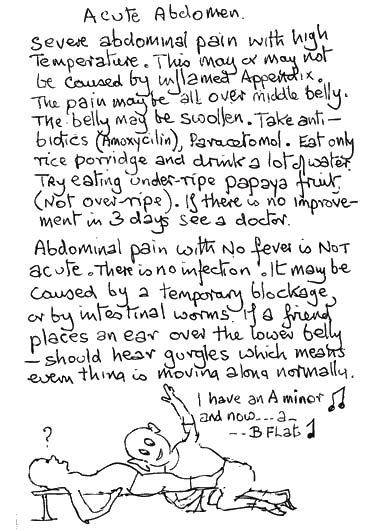 Acute Abdomen.
Severe abdominal pain with high
Temperature. This may or may not
be caused by inflamed Appendix.
The pain may be all over middle belly.
The belly may be swollen. Take anti-
biotics (Amoxycilin), Paracetomol. Eat only
rice porridge and drink a lot of water.
Try eating under-ripe papaya fruit
(Not over-ripe). If there is no improve-
ment in 3 days see a doctor.
Abdominal pain with No fever is NOT
acute. There is no infection. It may be
caused by a temporary blockage
or by intestinal worms. If a friend
places an ear over the lower belly
- should hear gurgles which means
every thing is moving along normally.
I have an A minor ♫
and now---a-
--B FLat ♪
?